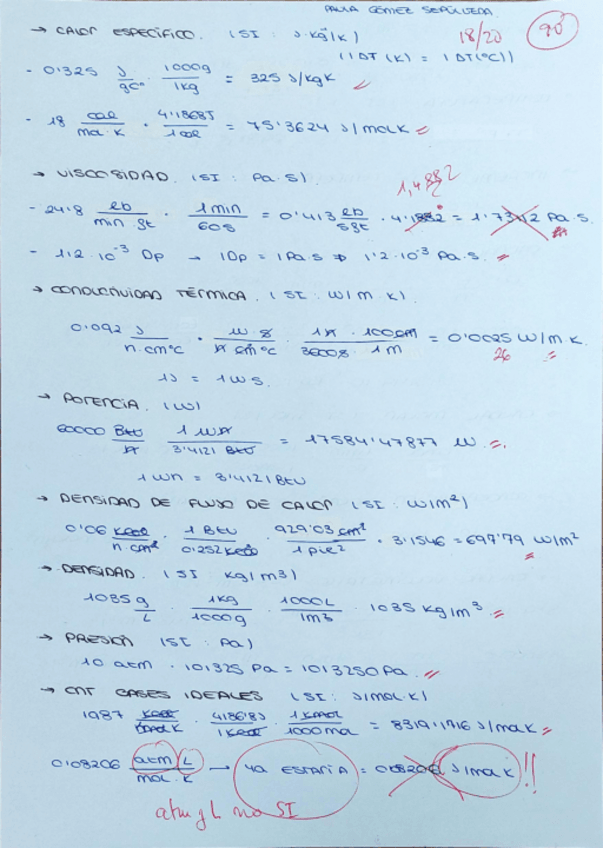 PAULA GÓMEZ SEPÚLVEDA.
→ CALOR ESPECÍFICO. (SI: J·kg/K) 18/20 90'
(1DT (K) = 1DT(ºC))
- 0'325 J/gCº · 1000g/1kg = 325 J/kgK
- 18 cal/mol·K · 4'1868J/1cal = 75'3624 J/molK
→ VISCOSIDAD. (SI: Pa·s). 1,4882
- 24'8 lb/min·gt · 1min/60s = 0'413 lb/sgt · 4'1882 = 1'73112 Pa·s.
- 1'2·10⁻³ Dp → 1Dp = 1Pa·s ⇒ 1'2·10⁻³ Pa·s.
→ CONDUCTIVIDAD TÉRMICA. (SI: W/m·K).
0'092 J/h·cmºC · W·s/h cmºC · 1h·100cm/3600s·1m = 0'0025 W/mK.
26
1J = 1W s.
→ POTENCIA. (W)
60000 Btu/h · 1Wh/3'4121 Btu = 17584'47877 W.
1Wh = 3'4121Btu
→ DENSIDAD DE FLUJO DE CALOR (SI: W/m²)
0'06 kcal/h·cm² · 1Btu/0'252kcal · 929'03cm²/1pie² · 3'1546 = 697'79 W/m²
→ DENSIDAD. (SI: kg/m3)
1035g/L · 1kg/1000g · 1000L/1m3 · 1035 kg/m³.
→ PRESIÓN (SI: Pa)
10 atm · 101325 Pa = 1013250Pa.
→ CNT GASES IDEALES (SI: J/mol·K)
1987 kcal/kmolK · 4186'8J/1kcal · 1kmol/1000mol = 8319'1716 J/molK
0'08206 atm L/mol·K → YA ESTARÍA = 0'08206 J/molK !!
atm y L no SI